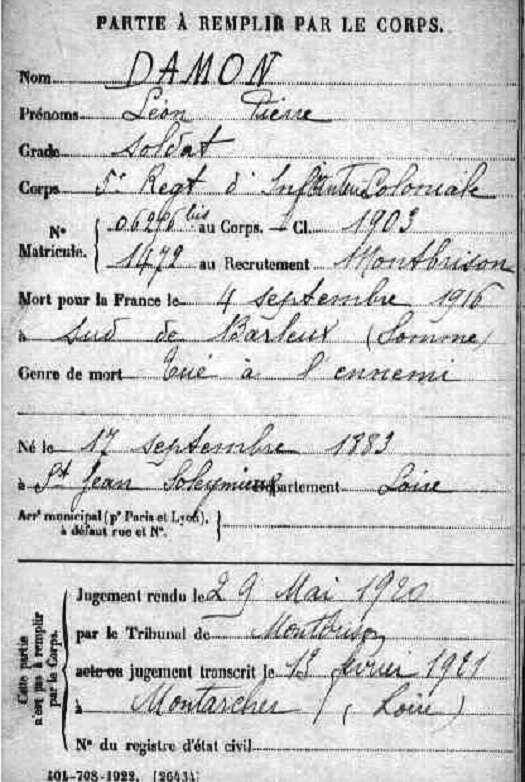 PARTIE À REMPLIR PAR LE CORPS.
Nom DAMON
Prénoms Léon Pierre
Grade soldat
Corps 5e Regt d'Infanterie Coloniale
No Matricule. 06296 bis au Corps. — Cl. 1903
1472 au Recrutement Montbrison
Mort pour la France le 4 septembre 1916
à sud de Barleux (Somme)
Genre de mort tué à l'ennemi
Né le 17 septembre 1883
à St Jean Soleymieux Département Loire
Arrt municipal (pr Paris et Lyon),
à défaut rue et No.
Cette partie n'est pas à remplir par le Corps.
Jugement rendu le 29 Mai 1920
par le Tribunal de Montbrison
acte ou jugement transcrit le 13 février 1921
à Montarcher (Loire)
No du registre d'état civil
101-708-1922. [26434]